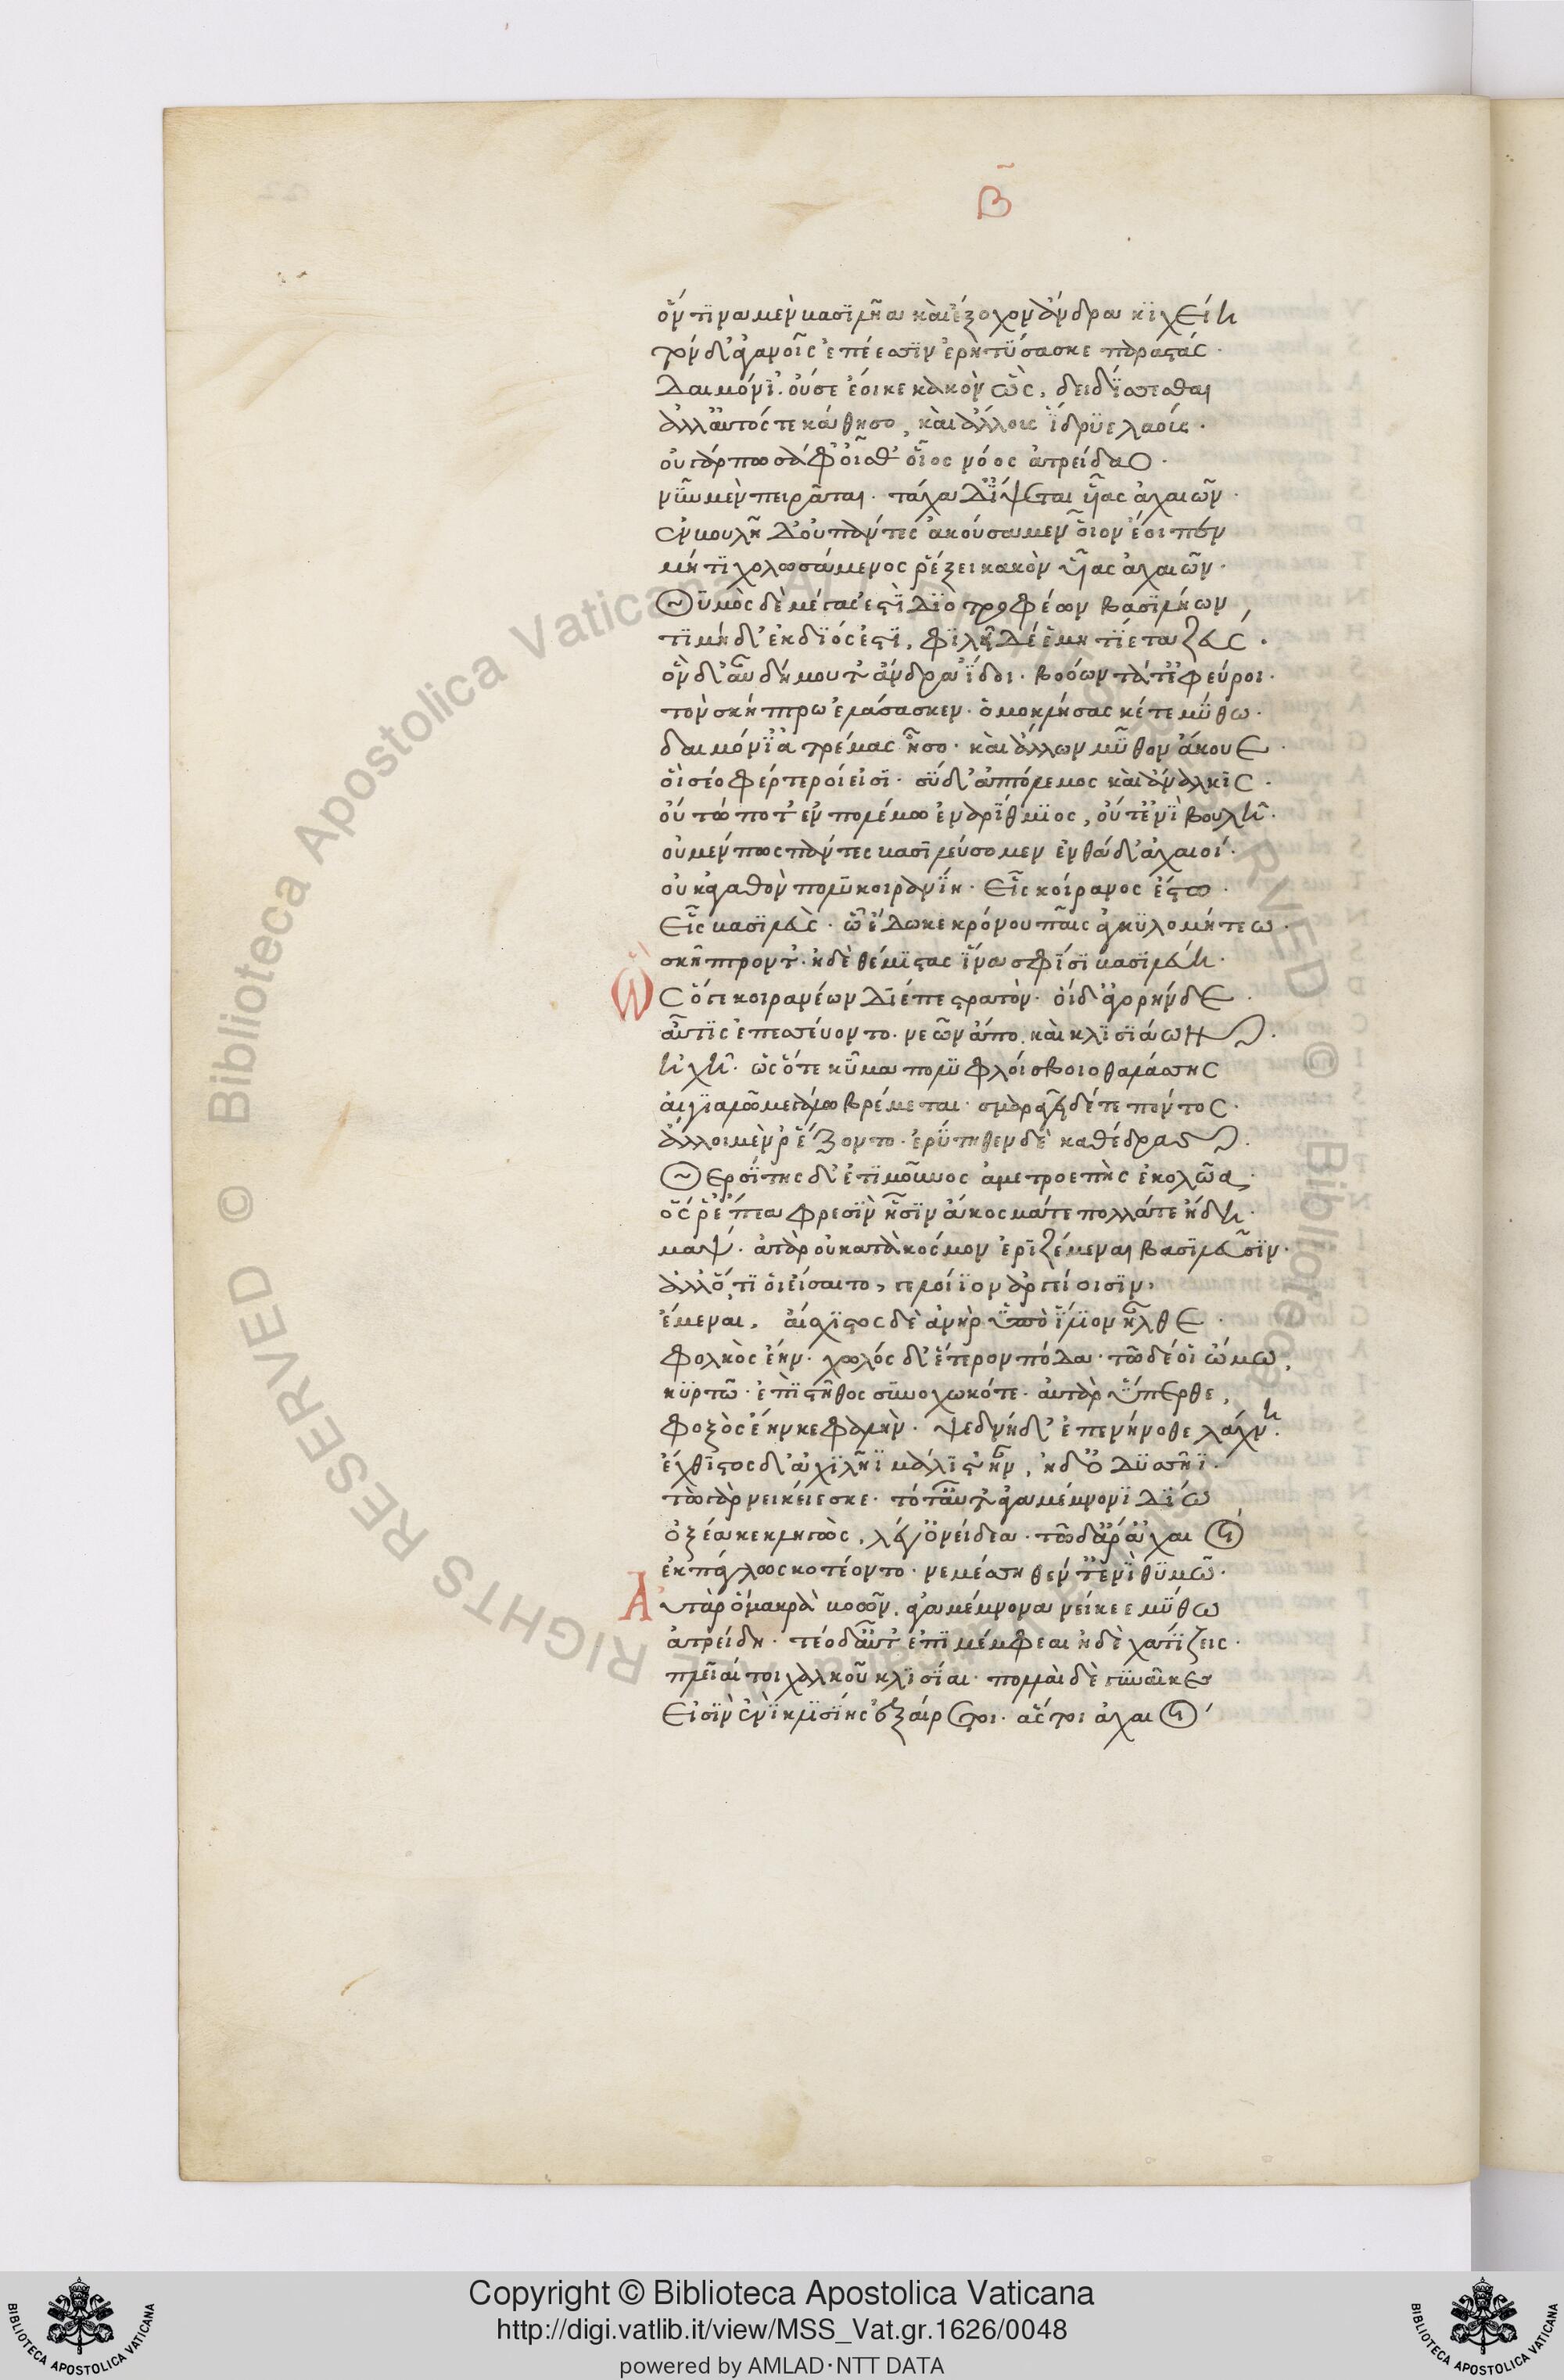 Β
ὅν τινα μὲν βασιλῆα καὶ ἔξοχον ἄνδρα κιχείη
τόν δ' ἀγανοῖς ἐπέεσσιν ἐρητύσασκε παραστάς.
Δαιμόνι'. οὔ σε ἔοικε κακὸν ὣς, δειδίσσεσθαι
ἀλλ' αὐτός τε κάθησο, καὶ ἄλλους ἵδρυε λαούς.
οὐ γάρ πω σάφ' οἶσθ' οἷος νόος ἀτρείδαο.
νῦν μὲν πειρᾶται. τάχα δ' ἴψεται υἷας ἀχαιῶν.
ἐν βουλῇ δ' οὐ πάντες ἀκούσαμεν οἷον ἔειπεν
μή τι χολωσάμενος ῥέξει κακὸν υἷας ἀχαιῶν.
Θυμὸς δὲ μέγας ἐστὶ Διοτρεφέων βασιλήων,
τιμὴ δ' ἐκ διός ἐστι, φιλεῖ δέ ἑ μητίετα ζεύς.
ὃν δ' αὖ δήμου τ' ἄνδρα ἴδοι. βοόωντά τ' ἐφεύροι.
τὸν σκήπτρω ἐλάσασκεν. ὁμοκλήσας κέ τε μύθω.
δαιμόνι' ἀτρέμας ἧσο. καὶ ἄλλων μῦθον ἄκουε.
οἳ σέο φέρτεροί εἰσι. σὺ δ' ἀπτόλεμος καὶ ἄναλκις.
οὔτε ποτ' ἐν πολέμω ἐναρίθμιος, οὔτ' ἐνὶ βουλῇ.
οὐ μέν πως πάντες βασιλεύσομεν ἐνθάδ' ἀχαιοί.
οὐκ ἀγαθὸν πολυκοιρανίη. εἷς κοίρανος ἔστω.
Εἷς βασιλεὺς. ᾧ ἔδωκε κρόνου παῖς ἀγκυλομήτεω.
σκῆπτρόν τ'. ἠδὲ θέμιστας ἵνα σφίσι βασιλεύῃ.
Ὣς ὅγε κοιρανέων δίεπε στρατὸν. οἱ δ' ἀγορήνδε.
αὖτις ἐπεσσεύοντο. νεῶν ἄπο. καὶ κλισιάων.
ἠχῇ. ὡς ὅτε κῦμα πολυφλοίσβοιο θαλάσσης
αἰγιαλῷ μεγάλω βρέμεται. σμαραγεῖ δέ τε πόντος.
ἄλλοι μὲν ῥ' ἕζοντο. ἐρήτυθεν δὲ καθ' ἕδρας.
Θερσίτης δ' ἔτι μοῦνος ἀμετροεπὴς ἐκολῴα.
ὅς ῥ' ἔπεα φρεσὶν ᾗσιν ἄκοσμά τε πολλά τε ᾔδη.
μὰψ. ἀτὰρ οὐ κατὰ κόσμον ἐριζέμεναι βασιλεῦσιν.
ἀλλ' ὅ, τι οἱ εἴσαιτο, γελοίϊον ἀργείοισιν,
ἔμεναι. αἴσχιστος δὲ ἀνὴρ ὑπὸ ἴλιον ἦλθε.
φολκὸς ἔην. χωλός δ' ἕτερον πόδα. τὼ δέ οἱ ὤμω,
κυρτὼ. ἐπὶ στῆθος συνοχωκότε. αὐτὰρ ὕπερθε,
φοξὸς ἔην κεφαλὴν. ψεδνὴ δ' ἐπενήνοθε λάχνη.
ἔχθιστος δ' ἀχιλῆϊ μάλιστ' ἦν, ἠδ' ὀδυσῆϊ.
τὼ γὰρ νεικείεσκε. τότ' αὖτ' ἀγαμέμνονι δίω
ὀξέα κεκληγὼς, λέγ' ὀνείδεα. τῷ δ' ἄρ' ἀχαιοί
ἐκπάγλως κοτέοντο. νεμέσσηθέν τ' ἐνὶ θυμῷ.
Αὐτὰρ ὁ μακρὰ βοῶν, ἀγαμέμνονα νείκεε μύθω
ἀτρείδη. τέο δ' αὖτ' ἐπιμέμφεαι ἠδὲ χατίζεις.
πλεῖαί τοι χαλκοῦ κλισίαι. πολλαὶ δὲ γυναῖκες
Εἰσὶν ἐνὶ κλισίης ἐξαίρετοι. ἅς τοι ἀχαιοί
Copyright © Biblioteca Apostolica Vaticana
http://digi.vatlib.it/view/MSS_Vat.gr.1626/0048
powered by AMLAD·NTT DATA